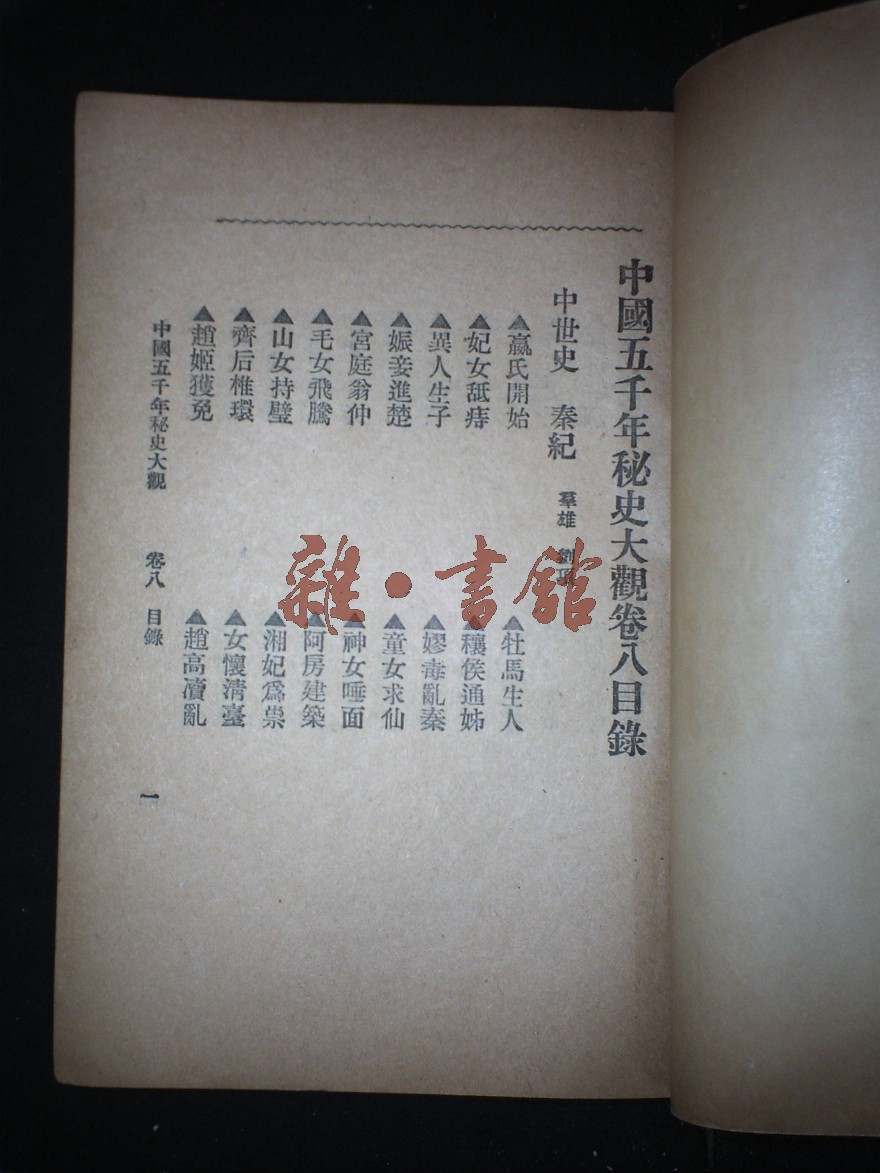 中國五千年秘史大觀卷八目錄
中世史 秦紀 羣雄 劉項
▲嬴氏開始
▲牡馬生人
▲妃女舐痔
▲穰侯通姊
▲異人生子
▲嫪毐亂秦
▲娠妾進楚
▲童女求仙
▲宮庭翁仲
▲神女唾面
▲毛女飛騰
▲阿房建築
▲山女持璧
▲湘妃爲祟
▲齊后椎環
▲女懷清臺
▲趙姬獲免
▲趙高瀆亂
中國五千年秘史大觀 卷八 目錄 一
雜·書館